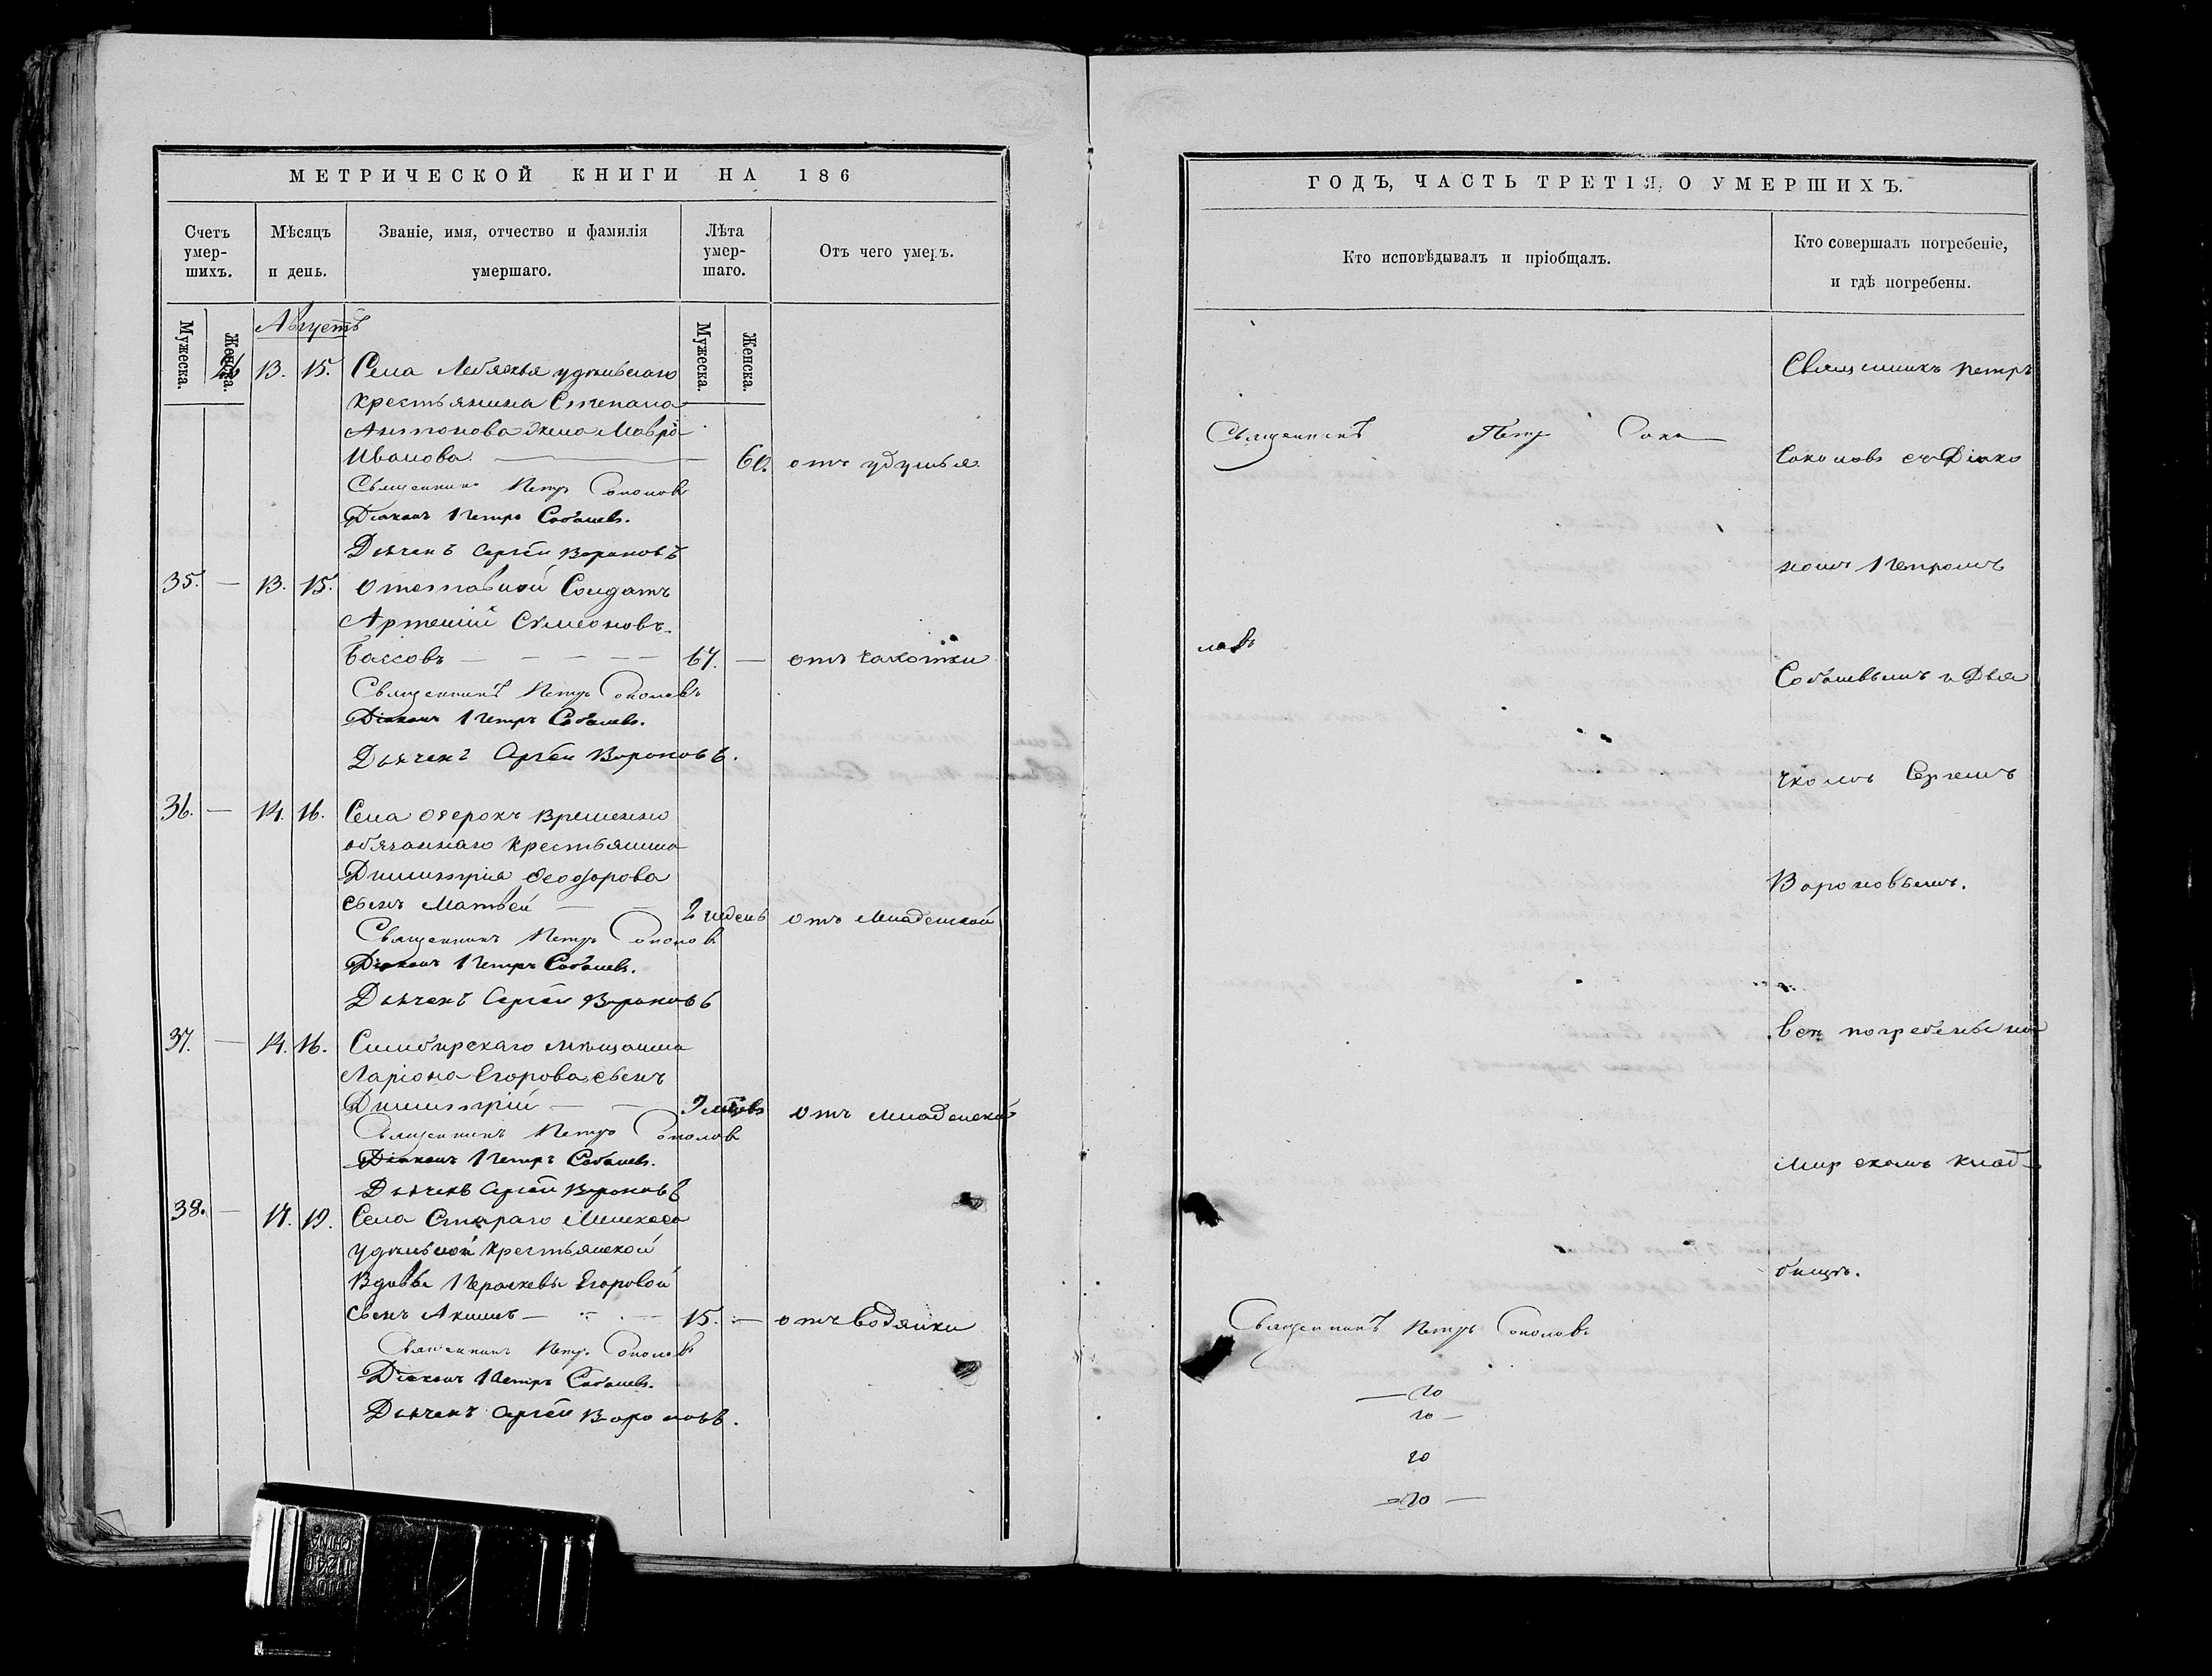 МЕТРИЧЕСКОЙ КНИГИ НА 186
Счетъ умер-шихъ.
Мѣсяцъ и день.
Званіе, имя, отчество и фамилія умершаго.
Лѣта умер-шаго.
Отъ чего умеръ.
Мужеска.
Женска.
Мужеска.
Женска.
Августъ
13. 15. Села Лебяжья удѣльнаго
крестьянина Степана
Антонова жена Мавра
Иванова. 60. отъ удушья
Священникъ Петръ Соколовъ
Діаконъ Петръ Соболевъ.
Дьячекъ Сергѣй Вороновъ
35. — 13. 15. Отставной Солдатъ
Артемій Симеоновъ
Бассовъ — — — — 67. — отъ чахотки
Священникъ Петръ Соколовъ
Діаконъ Петръ Соболевъ.
Дьячекъ Сергѣй Вороновъ.
36. — 14. 16. Села Озерокъ временно
обязаннаго крестьянина
Димитрія Ѳеодорова
сынъ Матвей — — 2 недель отъ младенской
Священникъ Петръ Соколовъ
Діаконъ Петръ Соболевъ.
Дьячекъ Сергѣй Вороновъ
37. — 14. 16. Симбирскаго мѣщанина
Ларіона Егорова сынъ
Димитрій — — отъ младенской
Священникъ Петръ Соколовъ
Діаконъ Петръ Соболевъ.
Дьячекъ Сергѣй Вороновъ
38. — 17. 19. Села Стараго
удѣльной крестьянской
вдовы Параскевы Егоровой
сынъ Акимъ — 15. — отъ водянки
Священникъ Петръ Соколовъ
Діаконъ Петръ Соболевъ.
Дьячекъ Сергѣй Вороновъ.
ГОДЪ, ЧАСТЬ ТРЕТІЯ, О УМЕРШИХЪ.
Кто исповѣдывалъ и пріобщалъ.
Кто совершалъ погребеніе,
и гдѣ погребены.
Священникъ Петръ Соко
ловъ
Священникъ Петръ Соколовъ
Священникъ Петръ
Соколовъ съ Діако
номъ Петромъ
Соболевымъ и Дья
чкомъ Сергѣемъ
Вороновымъ.
Всѣ погребены на
мирскомъ клад-
бищѣ.